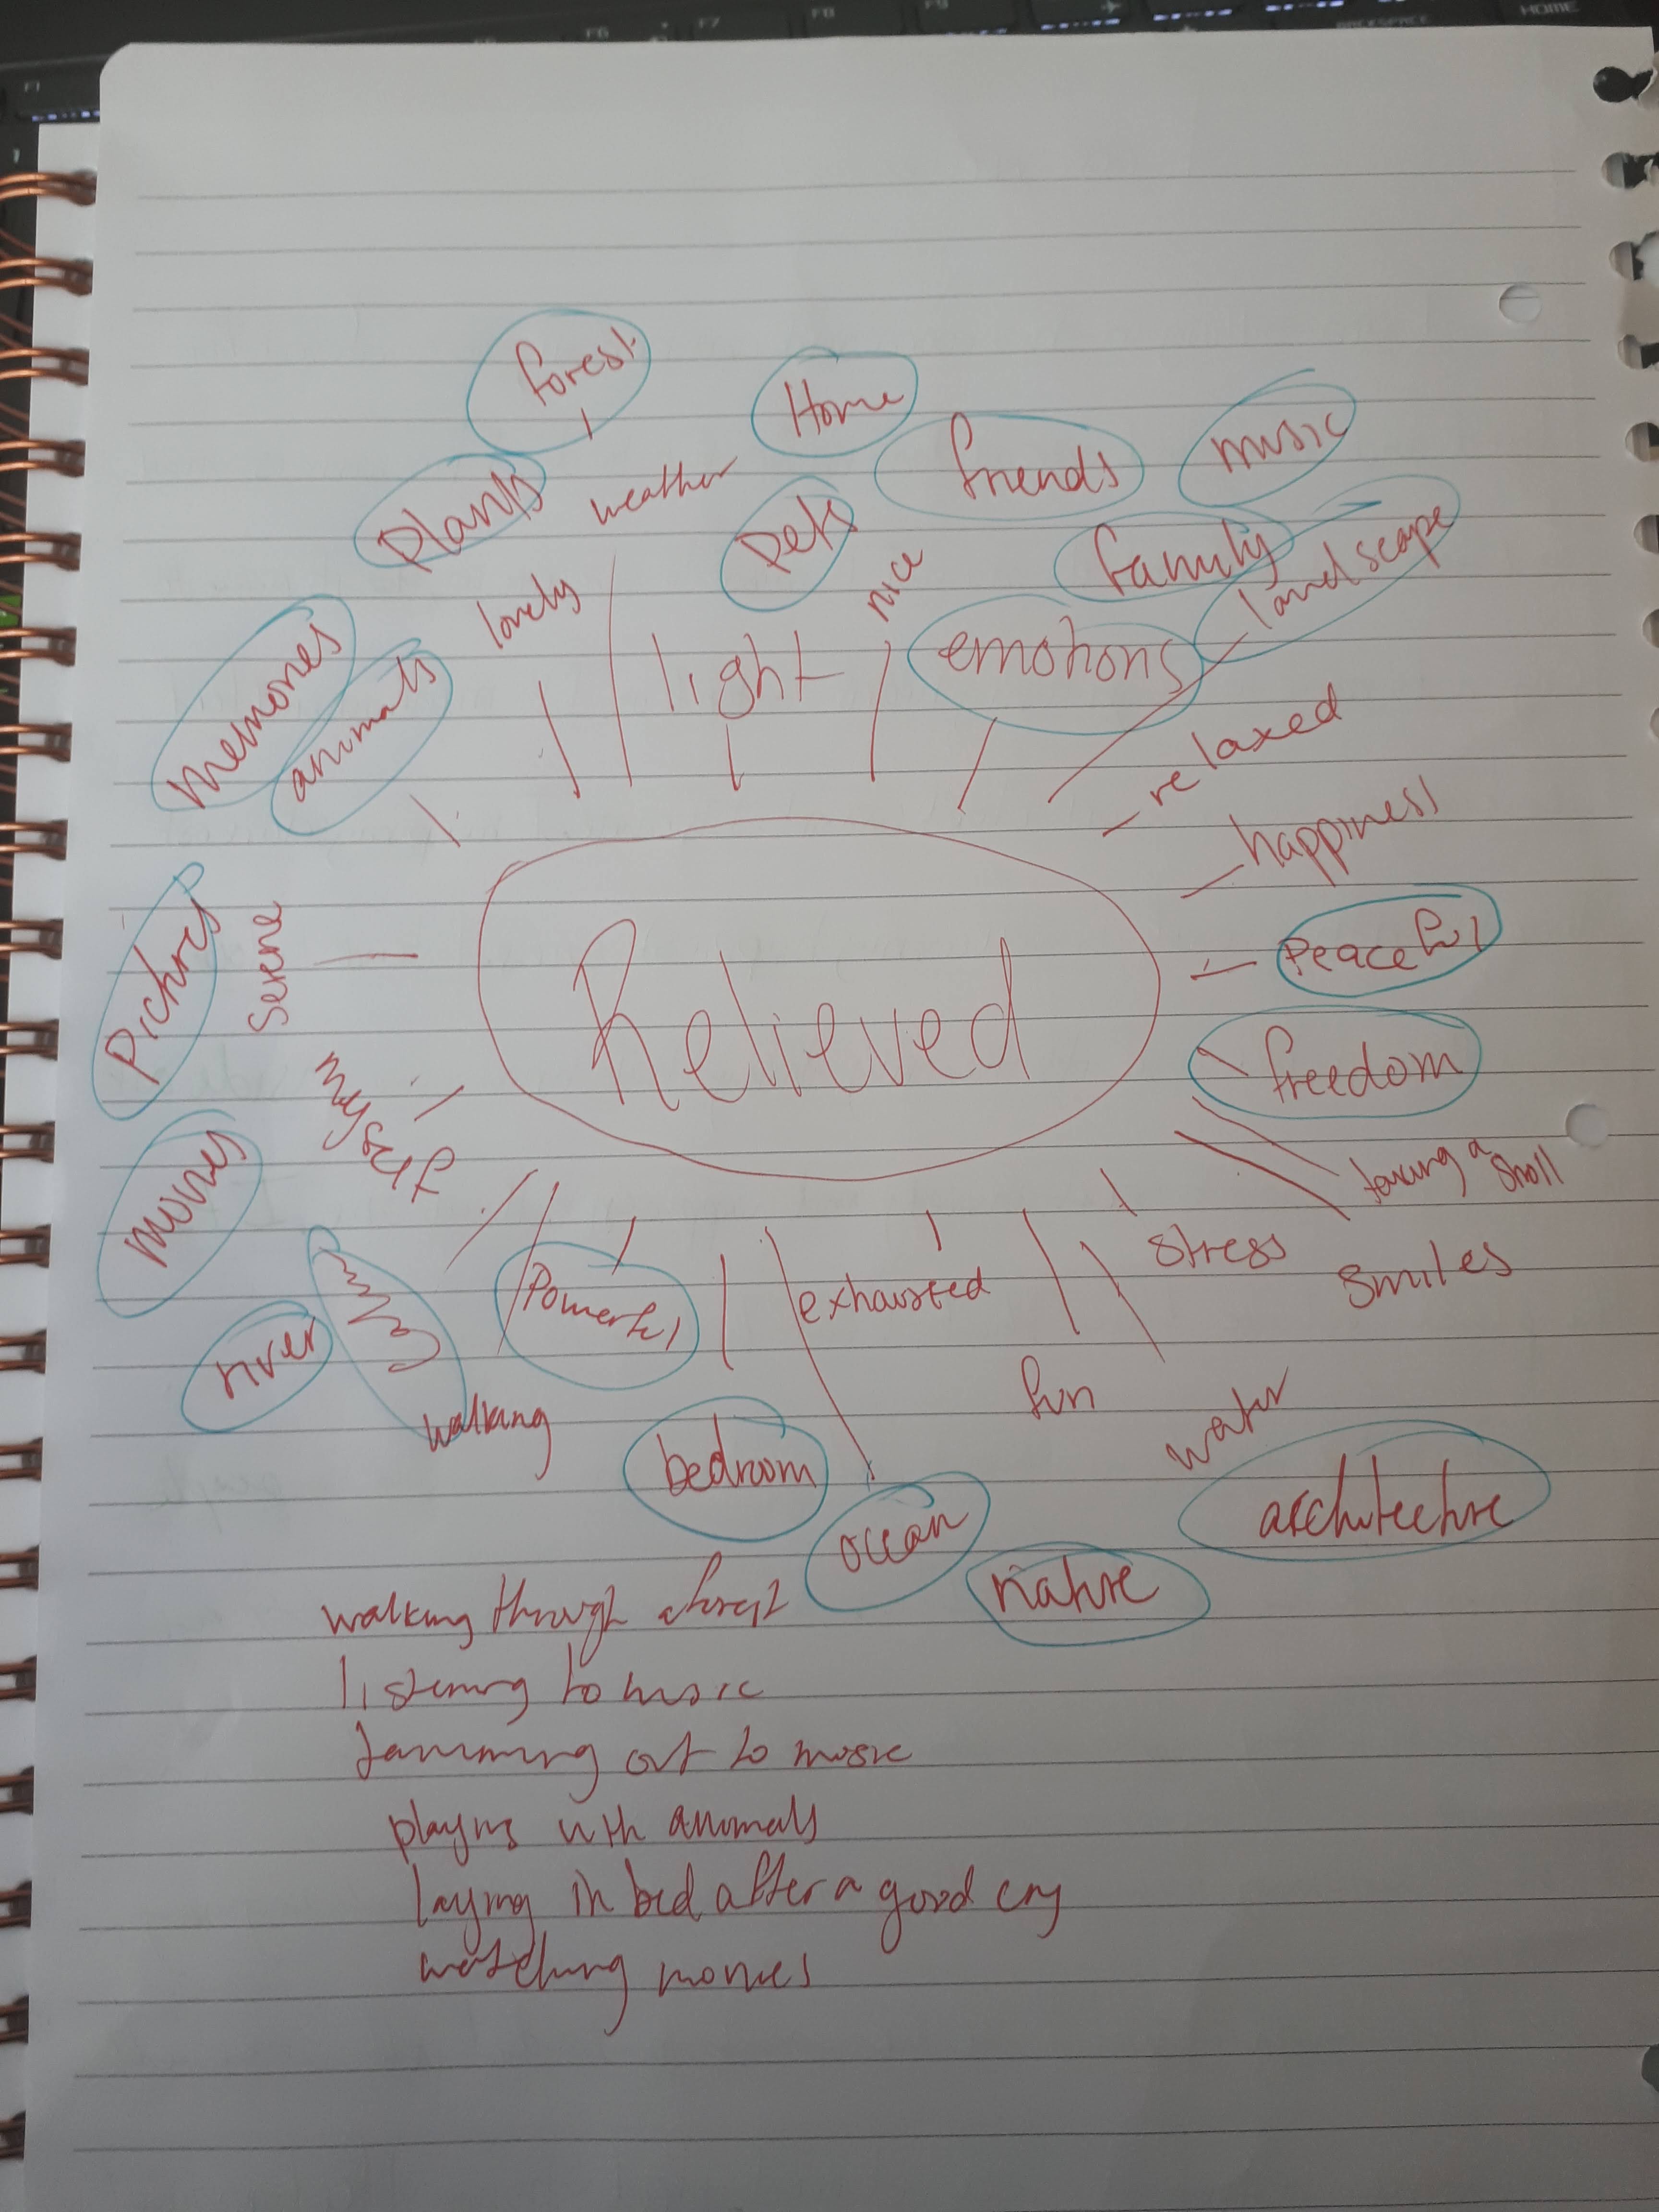 forest
Home
friends
music
plants
weather
pets
family
landscape
nice
lovely
light
emotions
memories
animals
relaxed
happiness
Pictures
Serene
Relieved
Peaceful
freedom
myself
movies
taking a stroll
stress
smiles
Powerful
exhausted
river
calm
walking
fun
water
bedroom
ocean
architecture
nature
walking through a forest
listening to music
Jamming out to music
playing with animals
laying in bed after a good cry
watching movies
F1
F6
F7
F8
F9
BACKSPACE
HOME